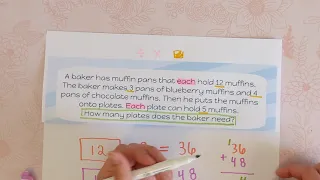 A baker has muffin pans that each hold 12 muffins.
The baker makes 3 pans of blueberry muffins and 4
pans of chocolate muffins. Then he puts the muffins
onto plates. Each plate can hold 5 muffins.
How many plates does the baker need?
12 = 36
48
36
+ 48